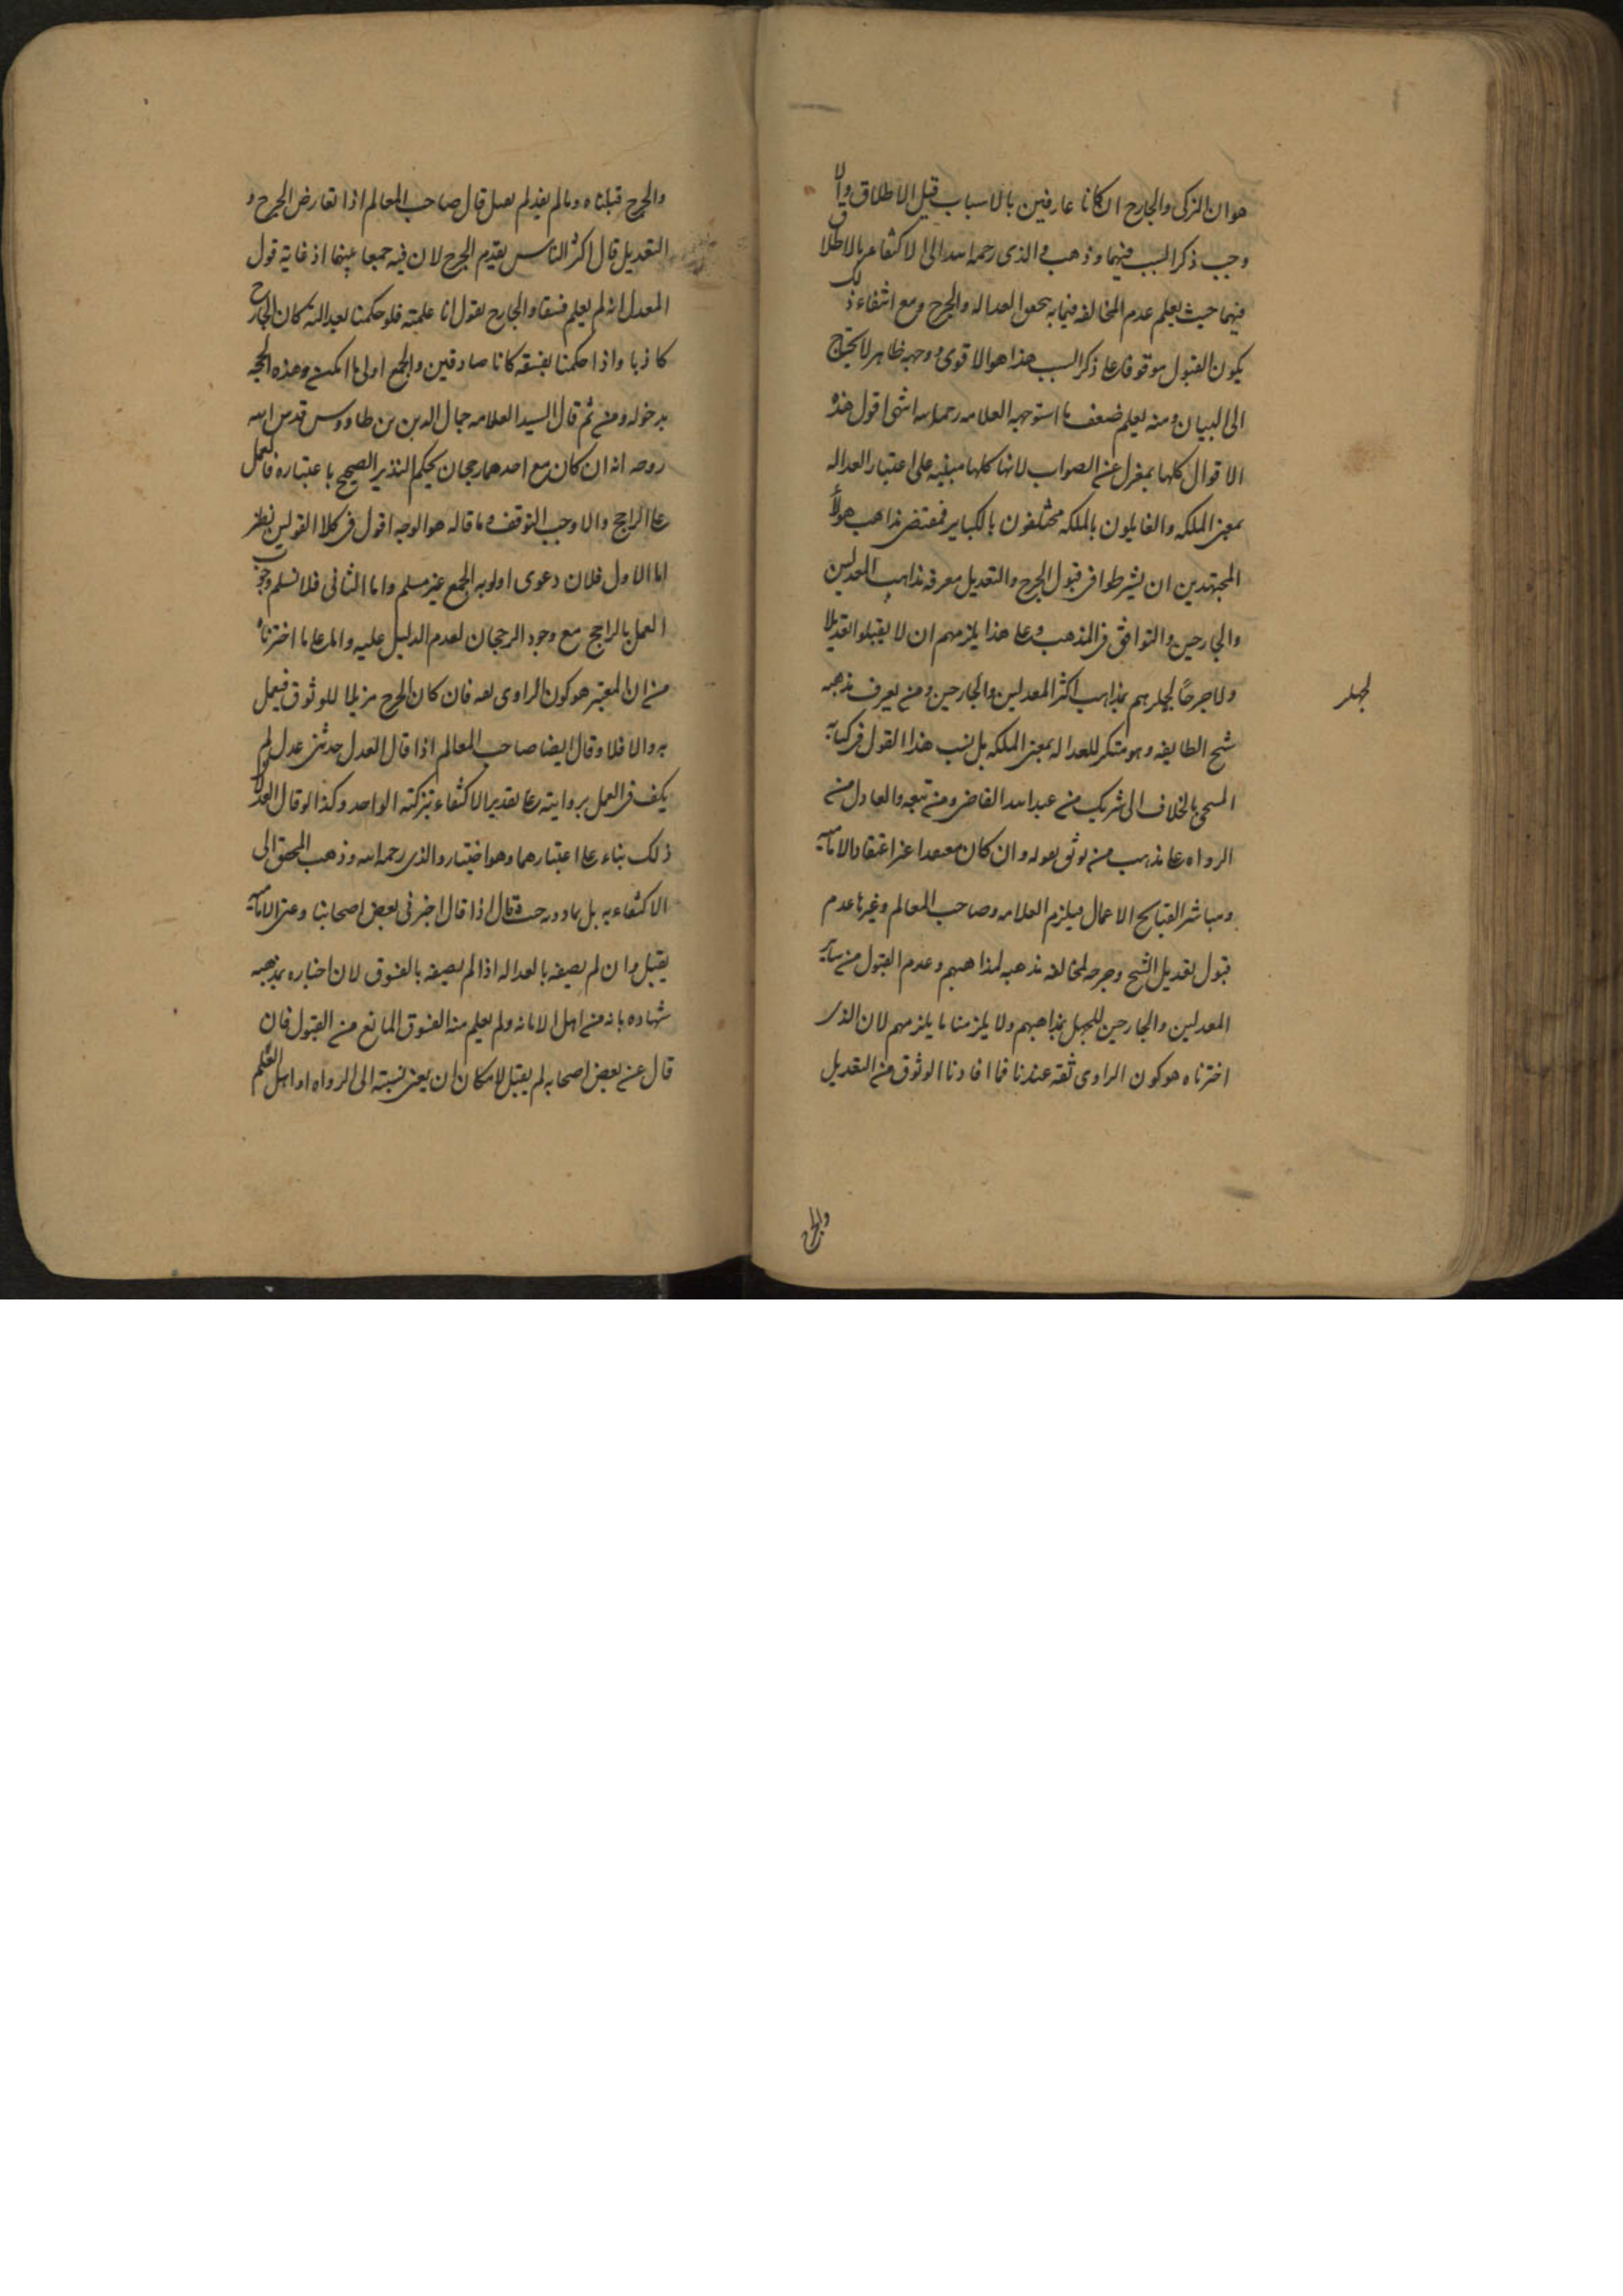 هو ان المزكى والجارح ان كانا عارفين بالاسباب قبل الاطلاق والا
وجب ذكر السبب فيهما وذهب والدى رحمه الله الى الاكتفاء بالاطلاق
فيهما حيث يعلم عدم المخالفه فيما به يتحقق العداله والجرح ومع انتفاء ذلك
يكون القبول موقوفا على ذكر السبب هذا هو الاقوى ووجهه ظاهر لا يحتاج
الى البيان ومنه يعلم ضعف ما استوجهه العلامه رحمه الله انتهى اقول هذه
الاقوال كلها بمعزل عن الصواب لانها كلها مبنيه على اعتبار العداله
بمعنى الملكه والقايلون بالملكه مختلفون بالكباير فمقتضى مذاهب هولاء
المجتهدين ان يشرطوا فى قبول الجرح والتعديل معرفه مذاهب المعدلين
والجارحين والتوافق فى المذهب وعلى هذا يلزمهم ان لا يقبلوا تعديلا
ولا جرحًا لجهلهم بمذاهب اكثر المعدلين والجارحين ومن يعرف مذهبه
شيخ الطايفه وهو منكر للعداله بمعنى الملكه بل نسب هذا القول فى كتابه
المسمى بالخلاف الى شريك بن عبد الله القاضى ومن تبعه والعادل من
الرواه على مذهبه من يوثق بقوله وان كان معتقدا غير اعتقاد الاماميه
ومباشر القبايح الاعمال فيلزم العلامه وصاحب المعالم وغيرها عدم
قبول تعديل الشيخ وجرحه لمخالفه مذهبه لمذاهبهم وعدم القبول من ساير
المعدلين والجارحين للجهل بمذاهبهم ولا يلزمنا ما يلزمهم لان الذى
اخترناه هو كون الراوى ثقه عندنا فما افادنا الوثوق من التعديل
لجهلـ
والجرح
والجرح قبلناه وما لم يفيد لم نعمل قال صاحب المعالم اذا تعارض الجرح و
التعديل قال اكثر الناس يقدم الجرح لان فيه جمعا بينهما اذ غاية قول
المعدل انه لم يعلم فسقا والجارح يقول انا علمته فلو حكمنا بعدالته كان الجارح
كاذبا واذا حكمنا بفسقه كانا صادقين والجمع اولى ما امكن وهذه الحجه
مدخوله ومن ثم قال السيد العلامه جمال الدين بن طاووس قدس الله
روحه انه ان كان مع احدهما رجحان يحكم التدبر الصحيح باعتباره فالعمل
على الراجح والا وجب التوقف وما قاله هو الوجه اقول فى كلا القولين نظر
اما الاول فلان دعوى اولويه الجمع غير مسلم واما الثانى فلا نسلم وجوب
العمل بالراجح مع وجود الرجحان لعدم الدليل عليه والمدعا ما اخترناه
من ان المعتبر هو كون الراوى ثقه فان كان الجرح مزيلا للوثوق فيعمل
به والا فلا وقال ايضا صاحب المعالم اذا قال العدل حدثنى عدل لم
يكف فى العمل بروايته على تقدير الاكتفاء بتزكية الواحد وكذا لو قال العدلان
ذلك بناء على اعتبارهما وهو اختيار والدى رحمه الله وذهب المحقق الى
الاكتفاء به بل بما دونه حيث قال اذا قال اخبرنى بعض اصحابنا وعنى الاماميه
يقبل وان لم يصفه بالعداله اذا لم يصفه بالفسوق لان اخباره بمذهبه
شهاده بانه من اهل الامانه ولم يعلم منه الفسوق المانع من القبول فان
قال عن بعض اصحابه لم يقبل لامكان ان يعنى نسبته الى الرواه او اهل العلم